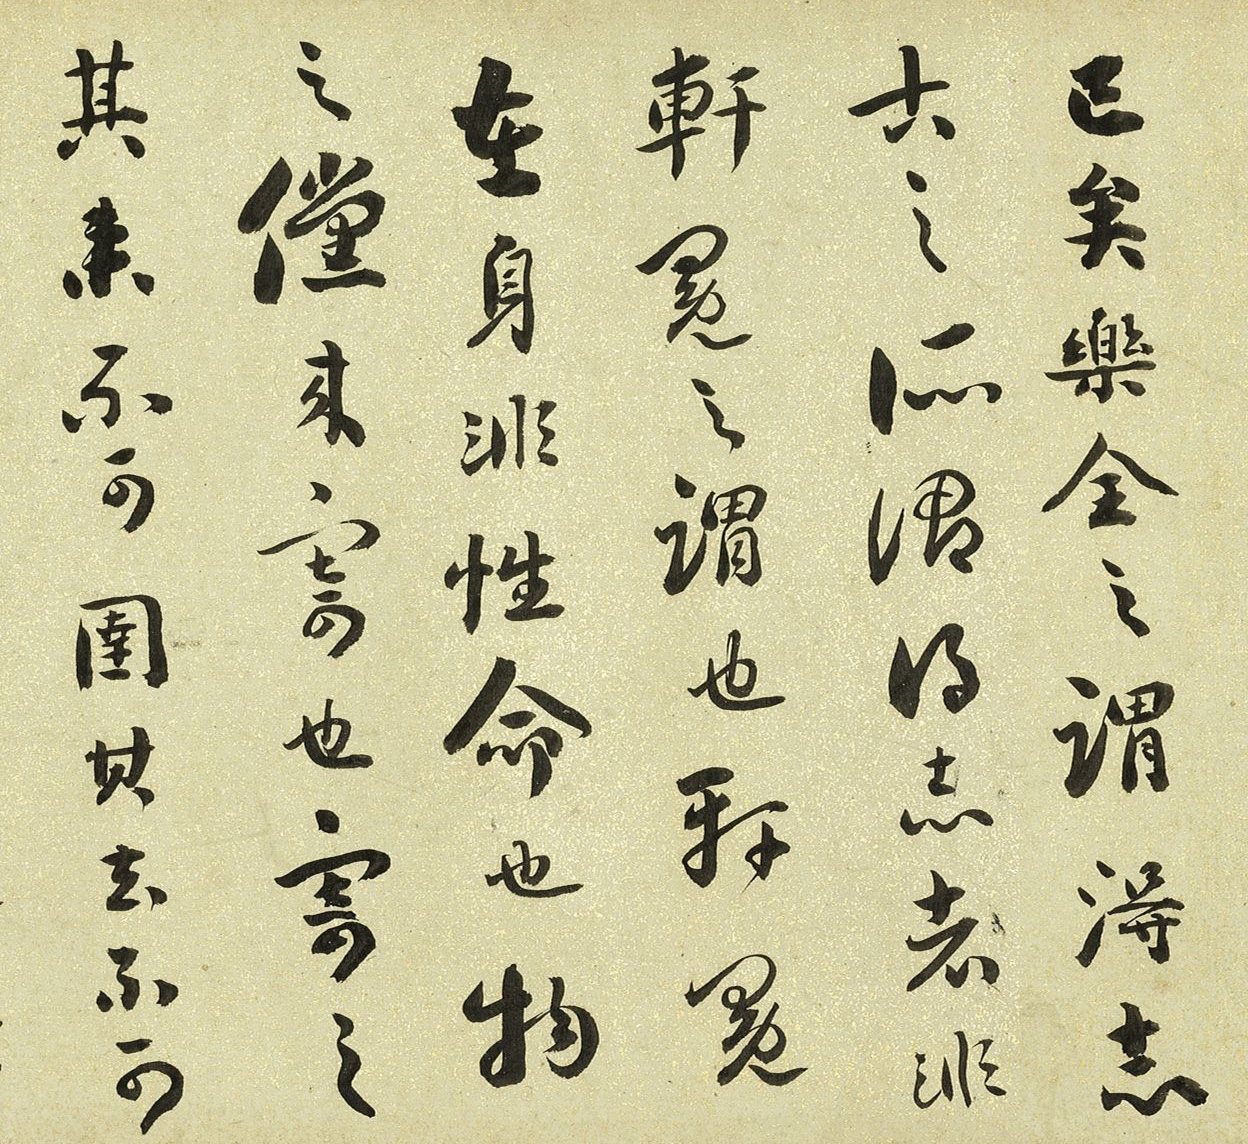 已矣樂全之謂得志
古之所謂得志者非
軒冕之謂也軒冕
在身非性命也物
之儻来寄也寄之
其來不可圉其去不可